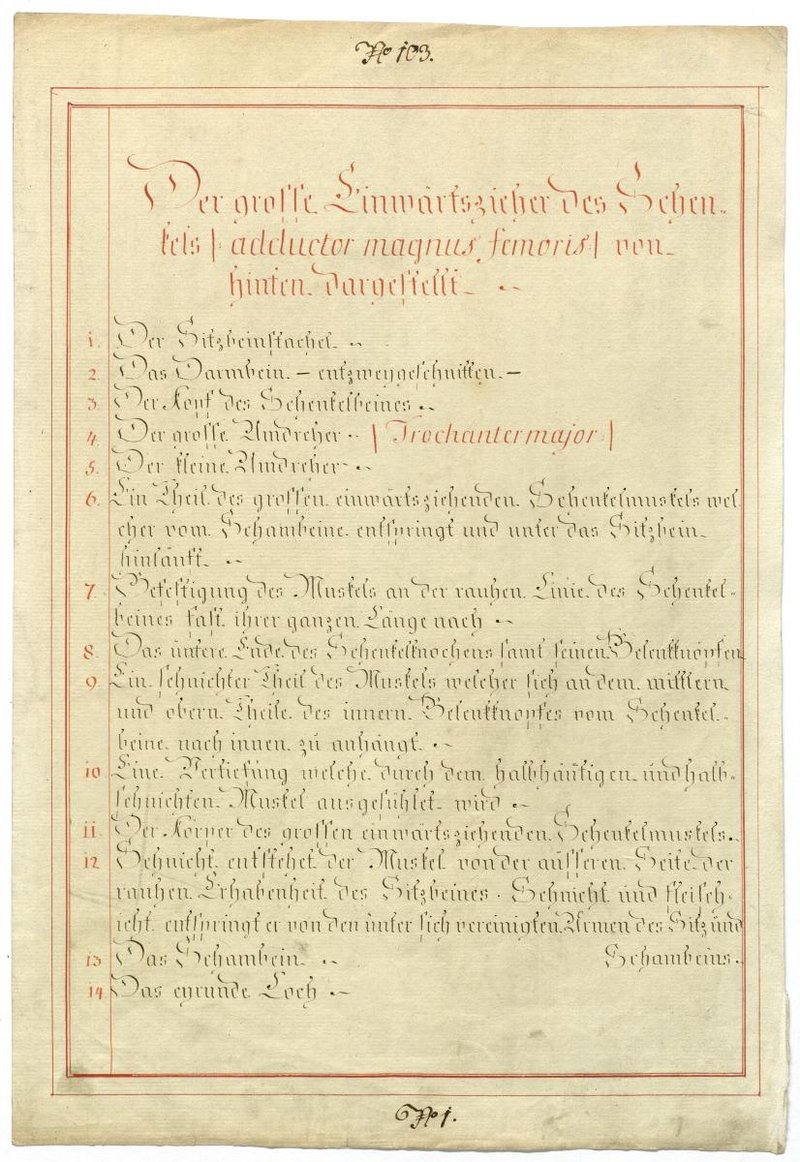 No 103.
Der grosse Einwärtszieher des Schen-
kels | adductor magnus femoris | von
hinten dargestellt
1. Der Sitzbeinstachel.
2. Das Darmbein. — entzweygeschnitten. —
3. Der Kopf des Schenkelbeines
4. Der grosse Umdreher | Trochanter major |
5. Der kleine Umdreher
6. Ein Theil des grossen einwärtsziehenden Schenkelmuskels wel
cher vom Schambeine entspringt und unter das Sitzbein
hinläuft.
7. Befestigung des Muskels an der rauhen Linie des Schenkel-
beines fast ihrer ganzen Länge nach
8. Das untere Ende des Schenkelknochens samt seinen Gelenkknöpfen
9. Ein sehnichter Theil des Muskels welcher sich an dem mittlern
und obern Theile des innern Gelenkknopfes vom Schenkel-
beine nach innen zu anhängt.
10 Eine Vertiefung welche durch dem halbhäutigen und halb-
sehnichten Muskel ausgefühlet wird
11. Der Körper des grossen einwärtsziehenden Schenkelmuskels.
12 Sehnicht entstehet der Muskel von der äusseren Seite der
rauhen Erhabenheit des Sitzbeines. Sehnicht und fleisch-
icht entspringt er von den unter sich vereinigten Armen des Sitz und
Schambeins.
13 Das Schambein.
14 Das eyrunde Loch
No 1.